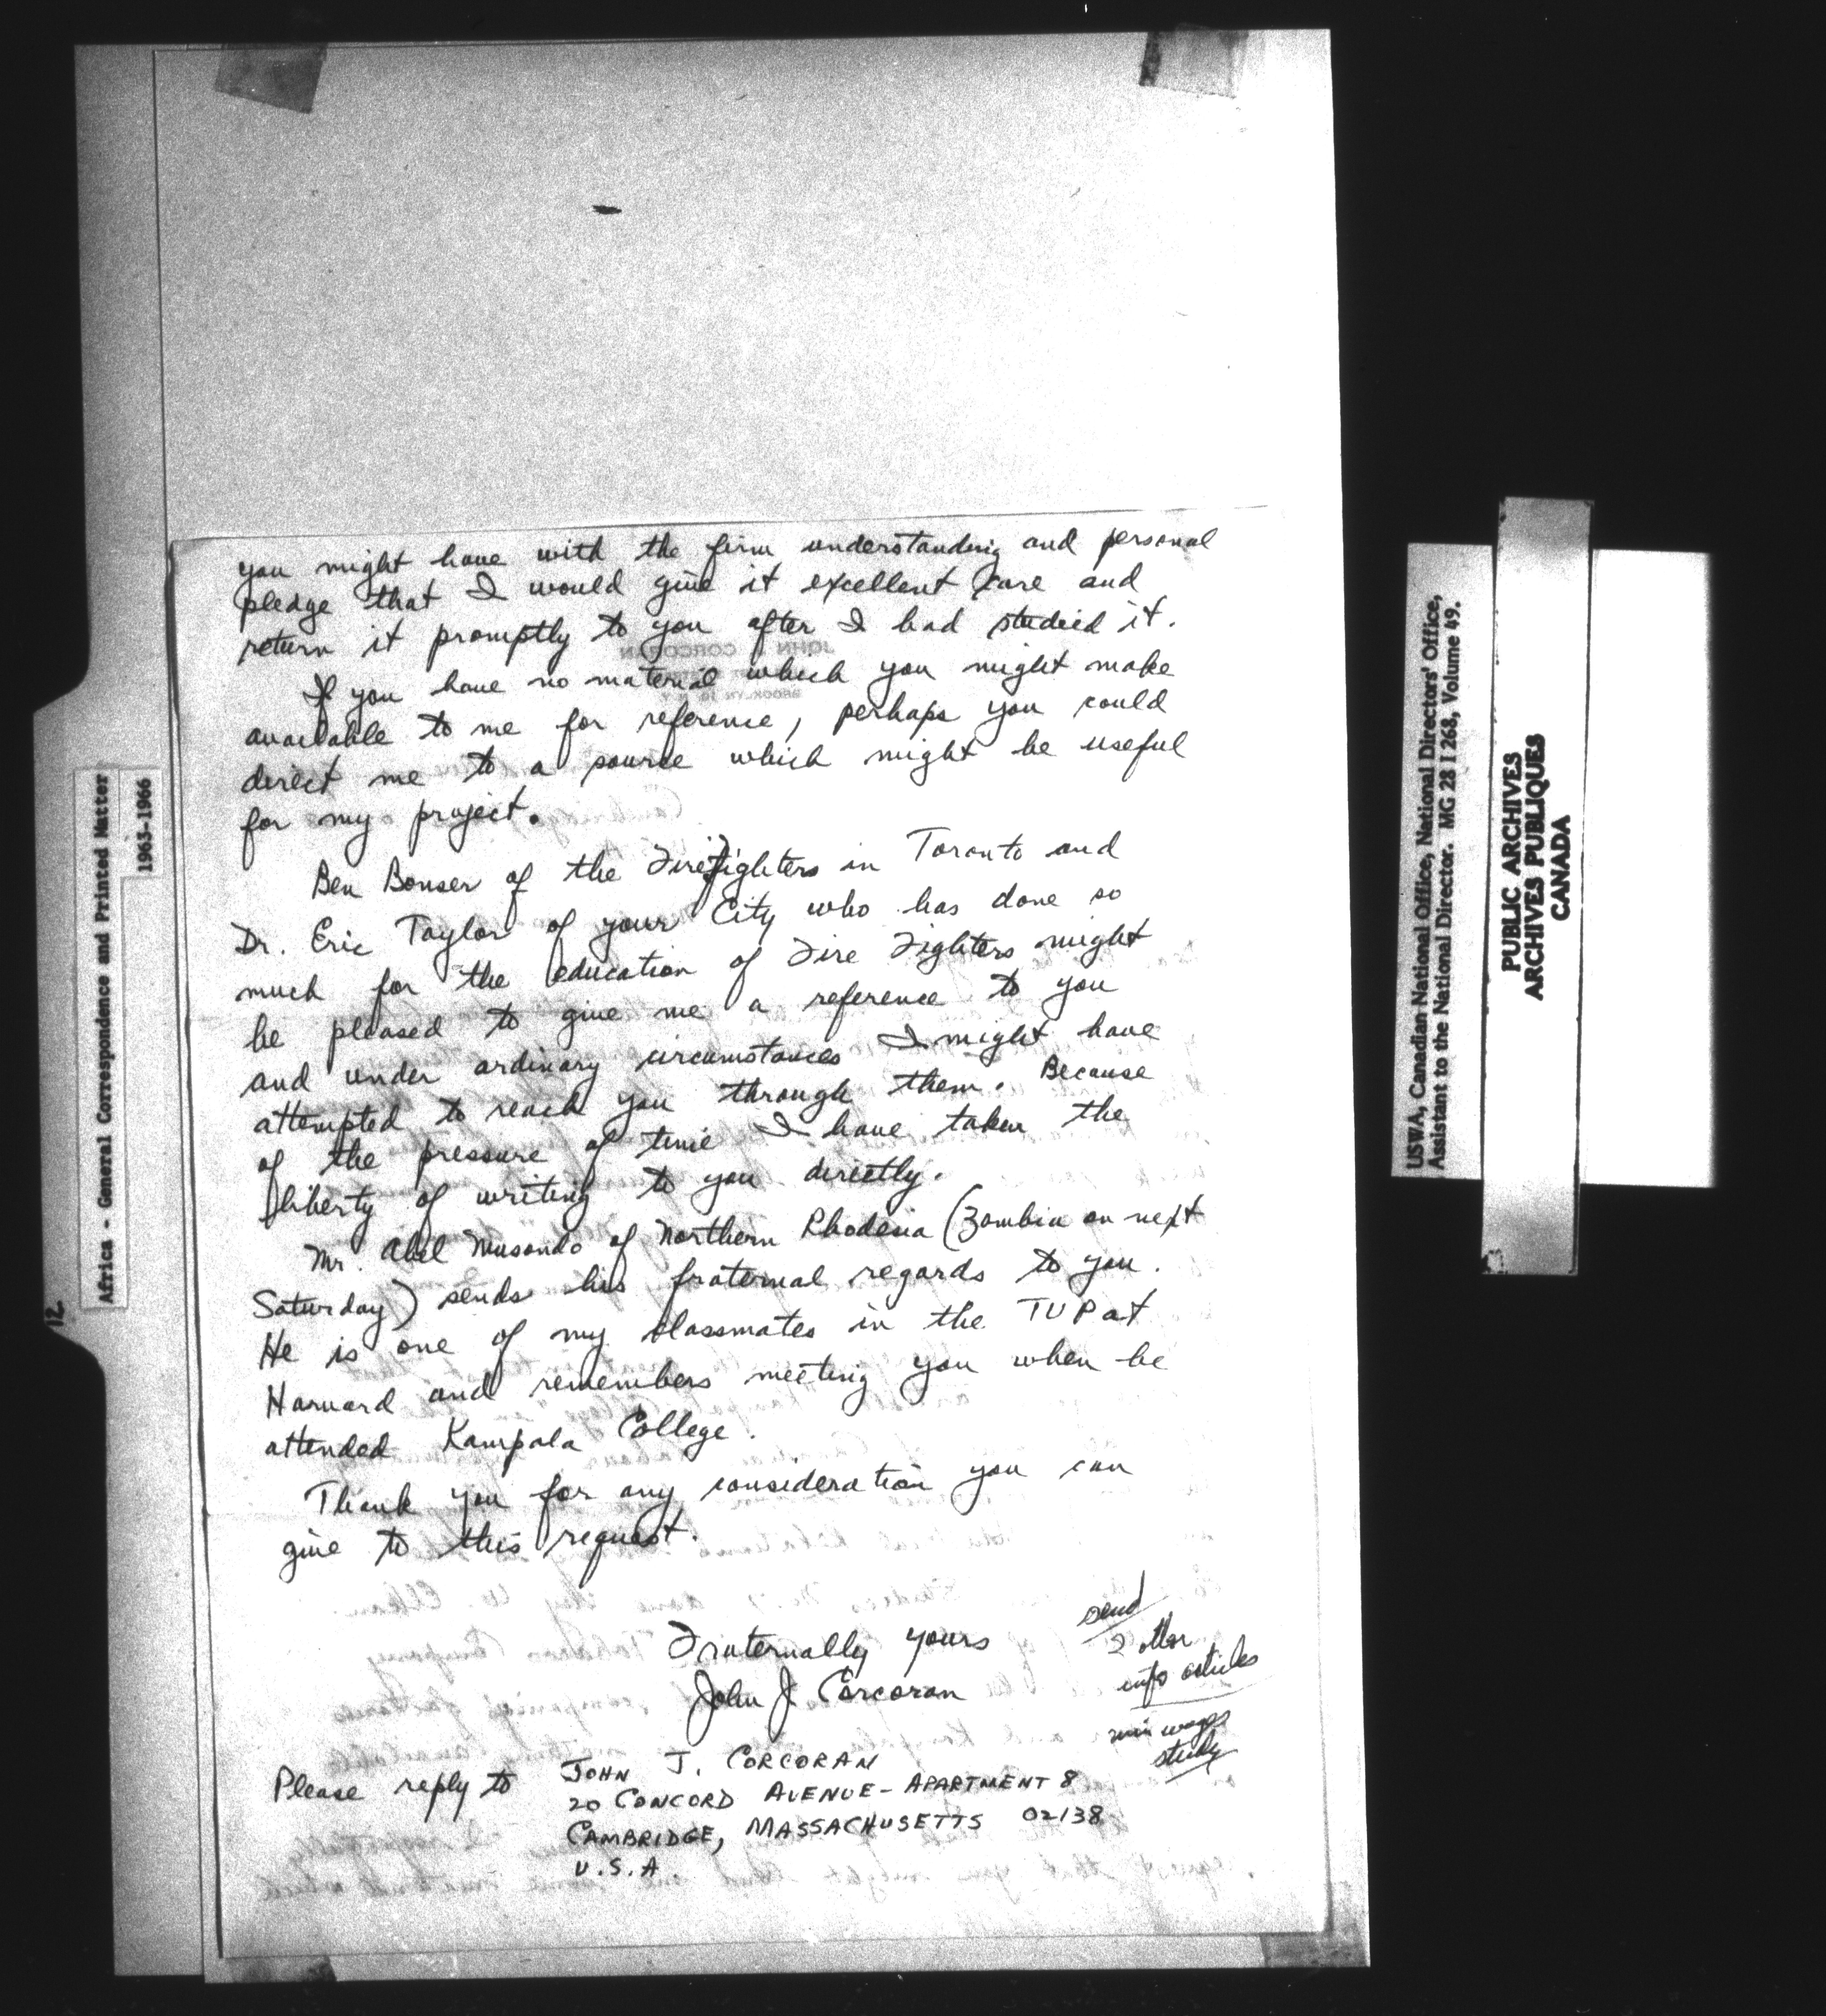 you might have with the firm understanding and personal
pledge that I would give it excellent care and
return it promptly to you after I had studied it.
If you have no material which you might make
available to me for reference, perhaps you could
direct me to a source which might be useful
for my project.
Ben Bonser of the Firefighters in Toronto and
Dr. Eric Taylor of your City who has done so
much for the education of Fire Fighters might
be pleased to give me a reference to you
and under ordinary circumstances I might have
attempted to reach you through them. Because
of the pressure of time I have taken the
liberty of writing to you directly.
Mr. Abel Musondo of Northern Rhodesia (Zambia on next
Saturday) sends his fraternal regards to you.
He is one of my classmates in the TUP at
Harvard and remembers meeting you when he
attended Kampala College.
Thank you for any consideration you can
give to this request.
Fraternally yours
John J. Corcoran
Please reply to JOHN J. CORCORAN
20 CONCORD AVENUE - APARTMENT 8
CAMBRIDGE, MASSACHUSETTS 02138
U.S.A.
send
2 other
info articles
min wages
study
Africa - General Correspondence and Printed Matter
1963-1966
12
USWA, Canadian National Office, National Directors' Office,
Assistant to the National Director. MG 28 I 268, Volume 49.
PUBLIC ARCHIVES
ARCHIVES PUBLIQUES
CANADA
JOHN J. CORCORAN